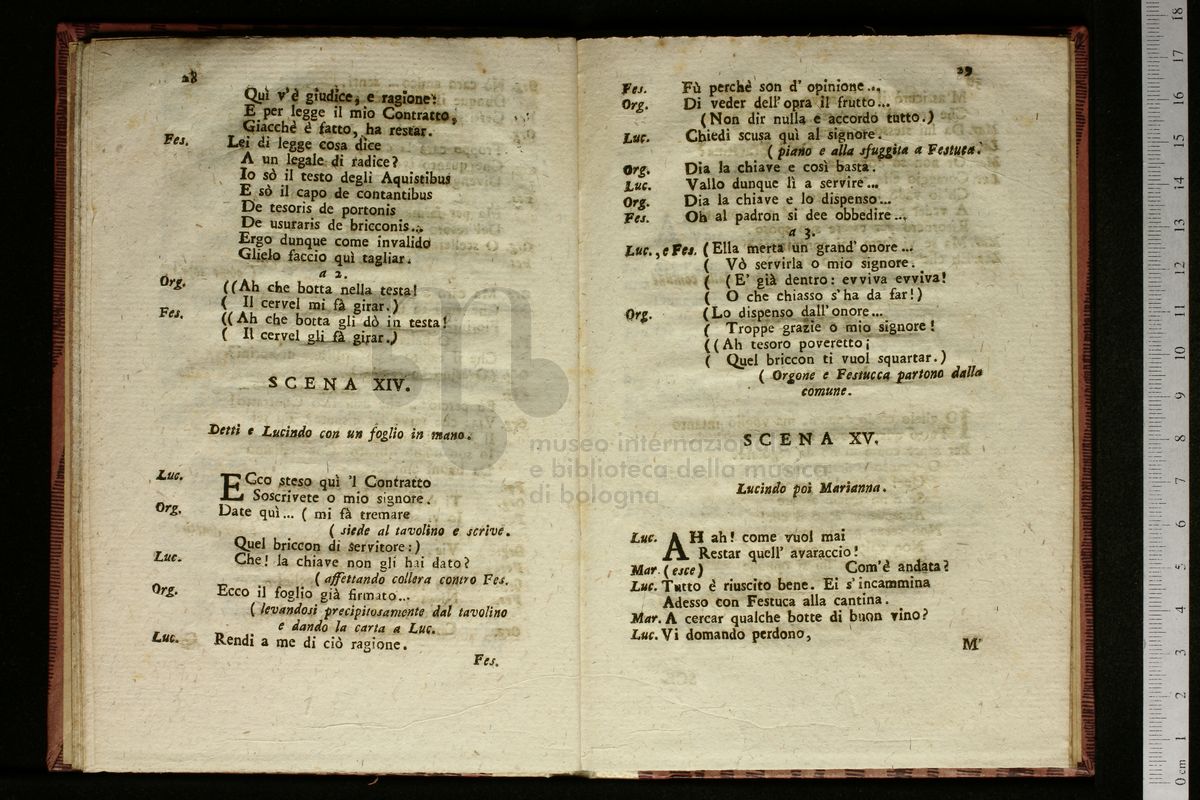 28
Quì v'è giudice, e ragione:
E per legge il mio Contratto,
Giacchè è fatto, ha restar.
Fes. Lei di legge cosa dice
A un legale di radice?
Io sò il testo degli Aquistibus
E sò il capo de contantibus
De tesoris de portonis
De usuraris de bricconis...
Ergo dunque come invalido
Glielo faccio quì tagliar.
a 2.
Org. ((Ah che botta nella testa!
( Il cervel mi fà girar.)
Fes. ((Ah che botta gli dò in testa!
( Il cervel gli fà girar.)
SCENA XIV.
Detti e Lucindo con un foglio in mano.
Luc. ECco steso quì 'l Contratto
Soscrivete o mio signore.
Org. Date quì... ( mi fà tremare
( siede al tavolino e scrive.
Quel briccon di servitore:)
Luc. Che! la chiave non gli hai dato?
( affettando collera contro Fes.
Org. Ecco il foglio già firmato...
( levandosi precipitosamente dal tavolino
e dando la carta a Luc.
Luc. Rendi a me di ciò ragione.
Fes.
29
Fes. Fù perchè son d' opinione...
Org. Di veder dell' opra il frutto...
(Non dir nulla e accordo tutto.)
Luc. Chiedi scusa quì al signore.
( piano e alla sfuggita a Festuca.
Org. Dia la chiave e così basta.
Luc. Vallo dunque lì a servire...
Org. Dia la chiave e lo dispenso...
Fes. Oh al padron si dee obbedire...
a 3.
Luc., e Fes. (Ella merta un grand' onore...
( Vò servirla o mio signore.
( (E' già dentro: evviva evviva!
( O che chiasso s' ha da far!)
Org. (Lo dispenso dall' onore...
( Troppe grazie o mio signore!
((Ah tesoro poveretto¡
( Quel briccon ti vuol squartar.)
( Orgone e Festucca partono dalla
comune.
SCENA XV.
Lucindo poi Marianna.
Luc. AH ah! come vuol mai
Restar quell' avaraccio!
Mar. (esce) Com'è andata?
Luc. Tutto è riuscito bene. Ei s' incammina
Adesso con Festuca alla cantina.
Mar. A cercar qualche botte di buon vino?
Luc. Vi domando perdono,
M'
museo internazionale
e biblioteca della musica
di bologna
0 cm 1 2 3 4 5 6 7 8 9 10 11 12 13 14 15 16 17 18